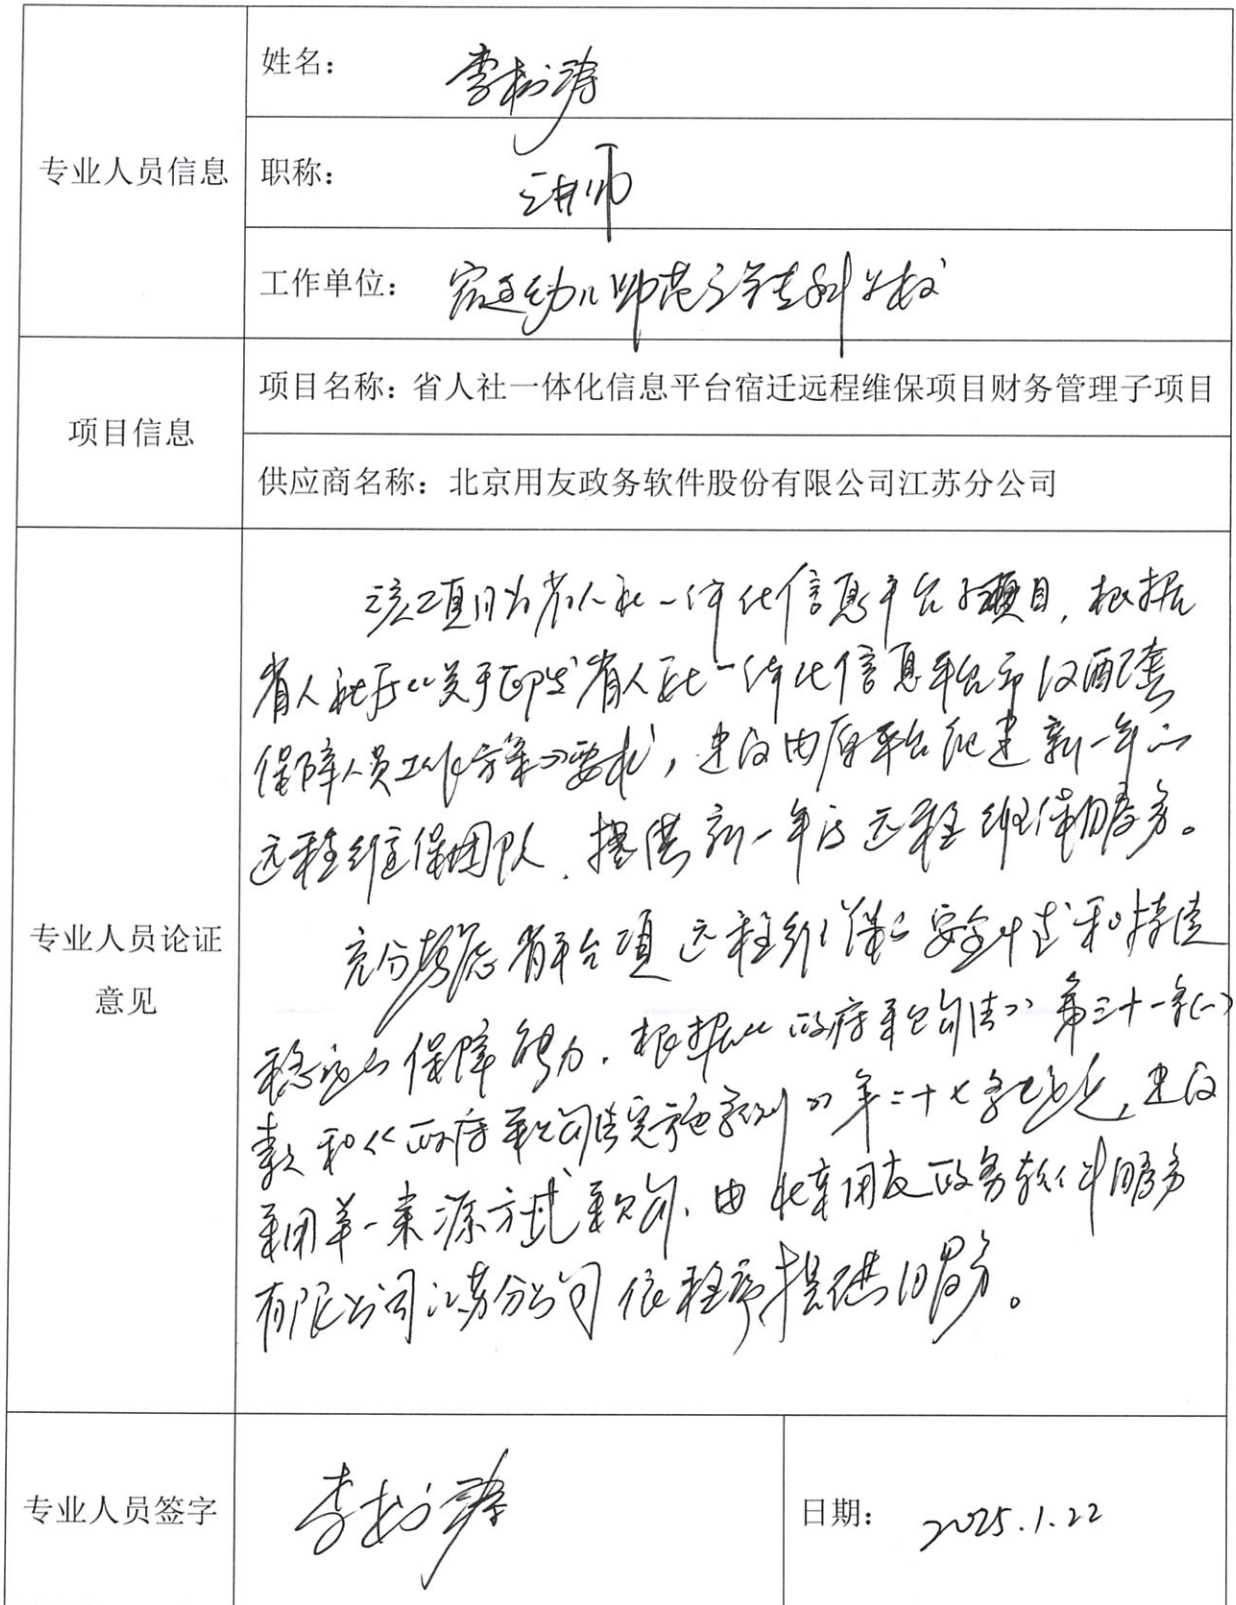 专业人员信息
姓名：李树涛
职称：讲师
工作单位：宿迁幼儿师范高等专科学校
项目信息
项目名称：省人社一体化信息平台宿迁远程维保项目财务管理子项目
供应商名称：北京用友政务软件股份有限公司江苏分公司
专业人员论证
意见
该项目为省人社一体化信息平台子项目，根据
省人社厅《关于印发省人社一体化信息平台市级配套
保障人员工作方案》要求，建议由原平台组建新一年的
远程维保团队，提供新一年的远程维保服务。
充分考虑省平台项目远程维保的安全性和持续
稳定的保障能力，根据《政府采购法》第三十一条(一)
款和《政府采购法实施条例》第二十七条规定，建议
采用单一来源方式采购，由北京用友政务软件服务
有限公司江苏分公司依程序提供服务。
专业人员签字
李树涛
日期：2025.1.22